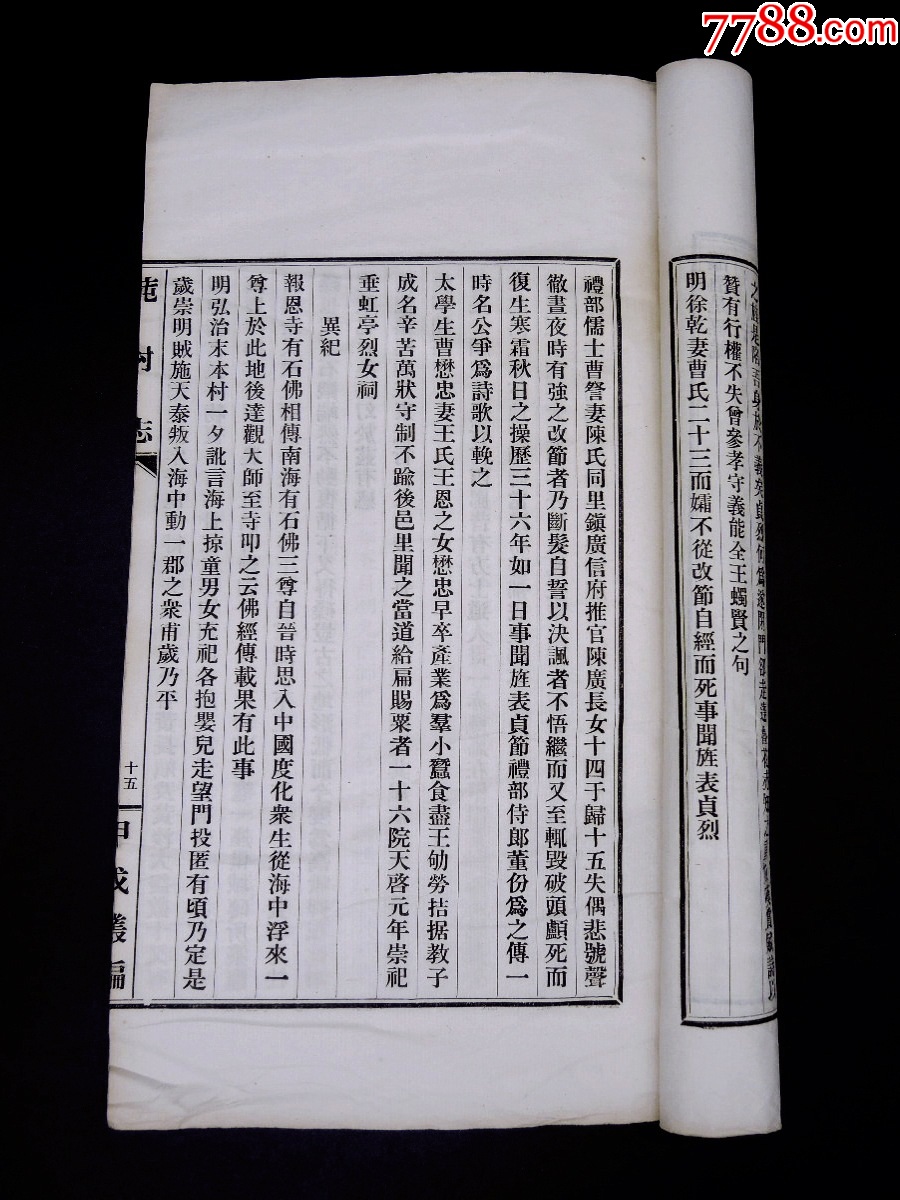 7788.com
贊有行權不失曾參孝守義能全王蠋賢之句
明徐乾妻曹氏二十三而孀不從改節自經而死事聞旌表貞烈
禮部儒士曹詧妻陳氏同里鎭廣信府推官陳廣長女十四于歸十五失偶悲號聲
徹晝夜時有強之改節者乃斷髮自誓以決諷者不悟繼而又至輒毀破頭顱死而
復生寒霜秋日之操歷三十六年如一日事聞旌表貞節禮部侍郎董份爲之傳一
時名公爭爲詩歌以輓之
太學生曹懋忠妻王氏王恩之女懋忠早卒產業爲羣小蠶食盡王劬勞拮据教子
成名辛苦萬狀守制不踰後邑里聞之當道給扁賜粟者一十六院天啓元年崇祀
垂虹亭烈女祠
異紀
報恩寺有石佛相傳南海有石佛三尊自晉時思入中國度化衆生從海中浮來一
尊上於此地後達觀大師至寺叩之云佛經傳載果有此事
明弘治末本村一夕訛言海上掠童男女充祀各抱嬰兒走望門投匿有頃乃定是
歲崇明賊施天泰叛入海中動一郡之衆甫歲乃平
村志
十五
甲戌叢編